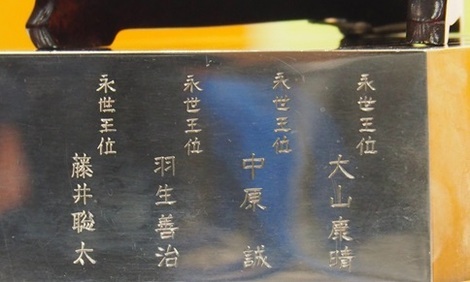 永世王位
大山康晴
永世王位
中原誠
永世王位
羽生善治
永世王位
藤井聡太